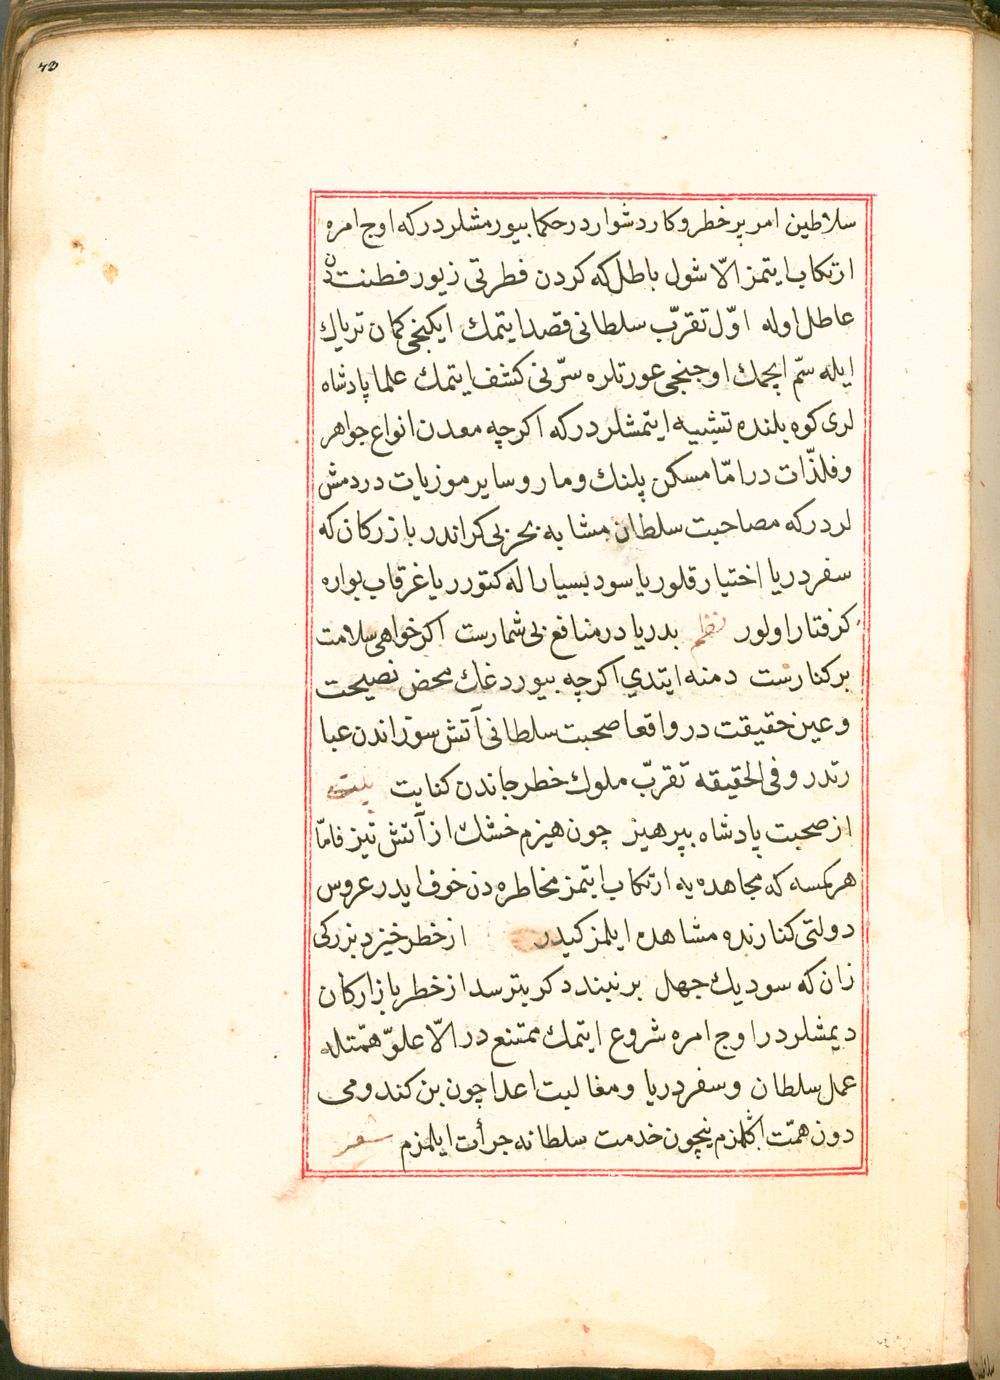 سلاطین امر پر خطر و کار دشوار در حکما بیورمشلردر که اوج امره
ارتکاب ایتمز الّا شول باطل که کردن فطرتی زیور فطنتدن
عاطل اوله اوّل تقرّب سلطانی قصد ایتمك ایکنجی کمان تریاك
ایله سمّ ایچمك اوجنجی عورتلره سرّنی کشف ایتمك علما پادشاه
لری کوه بلنده تشبیه ایتمشلردر که اکرچه معدن انواع جواهر
و فلذّات در امّا مسکن پلنك و مار و سایر موزیات در دمش
لردر که مصاحبت سلطان مشابه بحر بی کراندر بازرکان که
سفر دریا اختیار قلور یا سود بسیار اله کتورر یا غرقاب بواره
کرفتار اولور نظم بدریا در منافع بی شمارست اکر خواهی سلامت
بر کنارست دمنه ایتدی اکرچه بیوردغك محض نصیحت
و عین حقیقت در واقعا صحبت سلطانی آتش سوزاندن عبا
رتدر و فی الحقیقه تقرّب ملوك خطر جاندن کنایت بیت
از صحبت پادشاه بپرهیز چون هیزم خشك از آتش تیز فامّا
هر کمسه که مجاهده یه ارتکاب ایتمز مخاطره دن خوف ایدر عروس
دولتی کنارنده مشاهده ایلمز کیدر از خطر خیزد بزرکی
زان که سود یك جهل بر نبندد کر بترسد از خطر بازارکان
دیمشلردر اوج امره شروع ایتمك ممتنع در الّا علوّ همّتله
عمل سلطان و سفر دریا و مغالبت اعدا چون بن کندومی
دون همّت اکلمزم نیچون خدمت سلطانه جرأت ایلمزم شعر